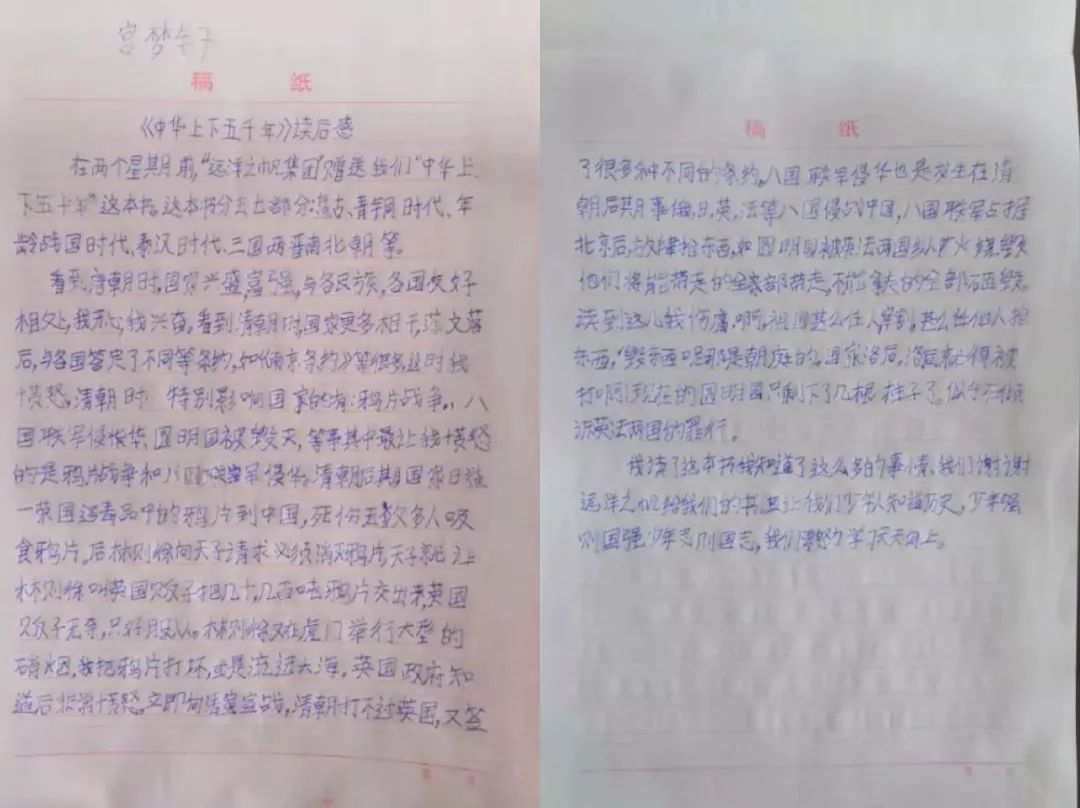 宫梦轩
稿 纸
《中华上下五千年》读后感
在两个星期前,"远洋之帆集团"赠送我们"中华上
下五千年"这本书。这本书分去七部分:盘古、青铜时代、年
龄战国时代、秦汉时代、三国两晋南北朝等。
看到唐朝时,国家兴盛,富强,与各民族,各国友好
相处,我开心,兴奋,看到清朝时,国家更多相干,落
后,与各国签定了不同等条约,如《南京条约》等很多,此时我
愤怒,清朝时,特别影响国家的有:鸦片战争、八
国联军侵华,圆明园被毁灭,等事其中最让我愤怒
的是鸦片战争和八国联军侵华,清朝后期国家日
英国运毒品中的鸦片到中国,多人吸
食鸦片,后林则徐向天子请求必须消灭鸦片,天子就让
林则徐叫英国贩子把几十,几百吨鸦片交出来,英国
贩子无奈,只好服从。林则徐又在虎门举行大型的
硝烟,把鸦片打坏,流进大海,英国政府知
道后非常愤怒,立即向清宣战,清朝打不过英国,又签
稿 纸
了很多种不同的条约。八国联军侵华也是发生在清
朝后期事,日、英、法等八国侵战中国,八国联军占据
北京后,放肆抢东西,如圆明园被英法两国纵火烧毁
他们将能带走的全部带走,不能拿走的全部砸毁。
读到这儿我伤痛啊,祖国甚么任人宰割,甚么任他人抢
东西,毁东西呢,那是朝庭的,国家落后,落后就得被
打啊,现在的圆明园只剩下了几根柱子了。似乎在倾
诉英法两国的罪行。
我读了这本书我知道了这么多的事情,我们谢谢
远洋之帆给我们的书,且让我们少年人知道历史,少年强
则国强少年志则国志,我们要努力学习天天向上。